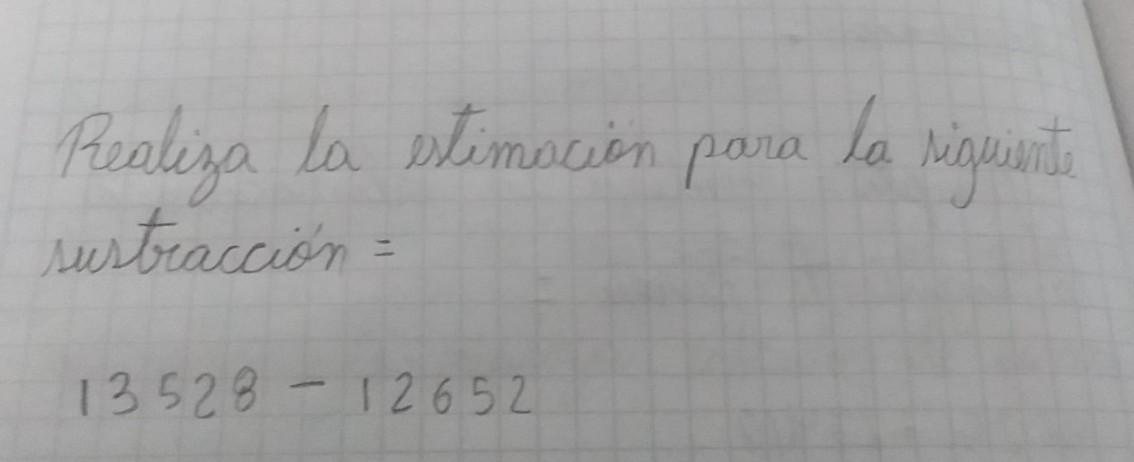 Realiza la estimación para la siguiente
sustracción =
13528 - 12652